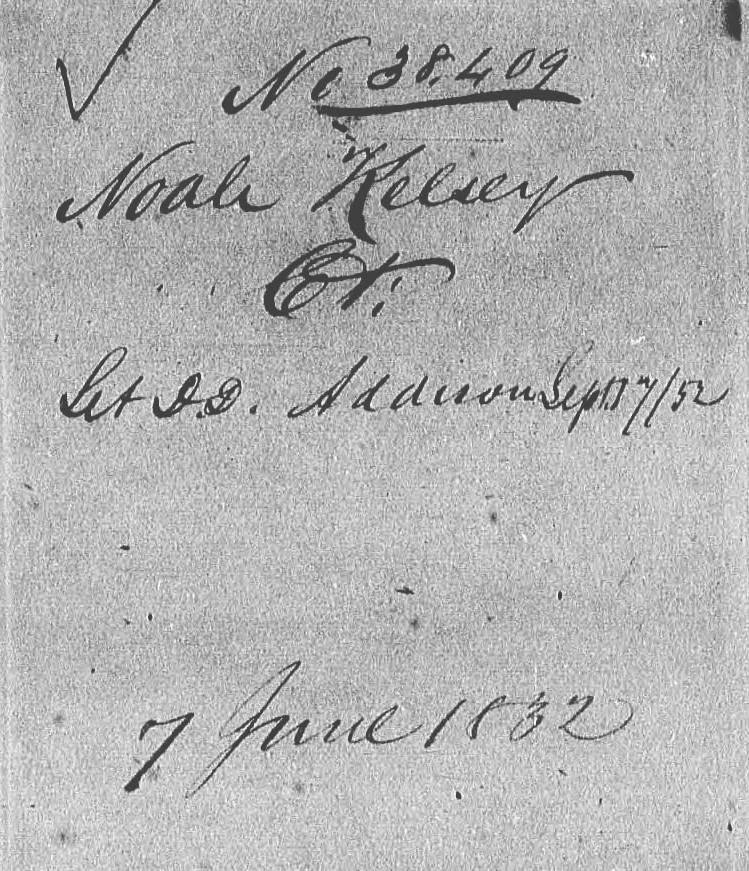 No 38.409
Noah Kelsey
Ct.
Let D.D. Addison Sept 17/52
7 June 1832